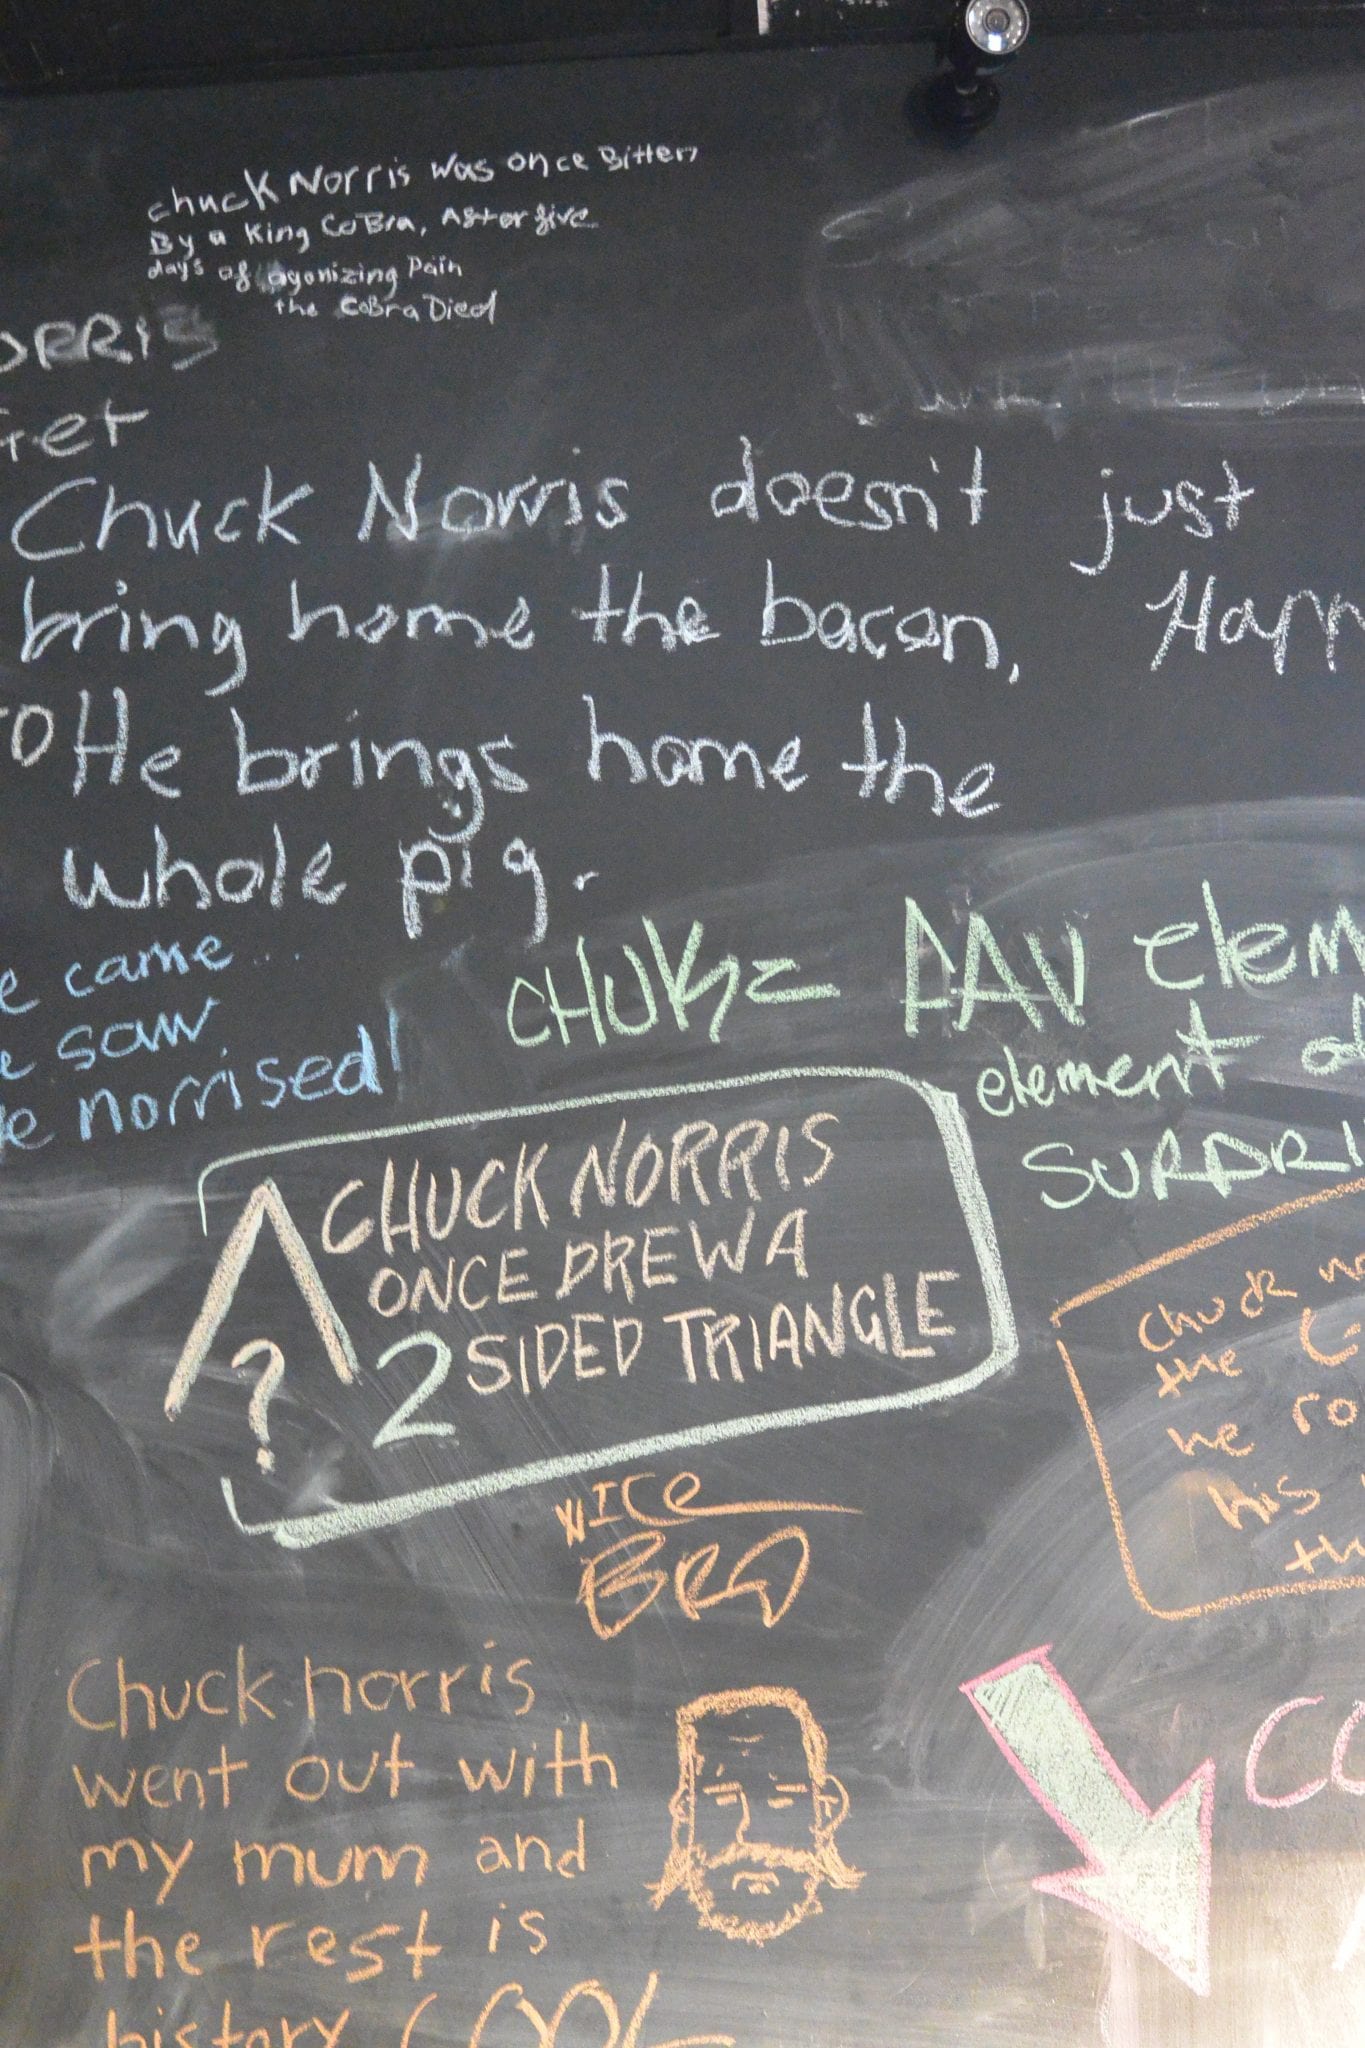 chuck Norris was once Bitten
By a King CoBra, After five
days of agonizing Pain
the CoBra Died
ORRIS
Chuck Norris doesn't just
bring home the bacon.
Happ
TO
He brings home the
whole pig.
e came...
e saw
e norrised!
CHUK=
FAV elem
element of
SURPRI
CHUCK NORRIS
ONCE DREW A
2 SIDED TRIANGLE
?
NICE
BRO
Chuck no
the
he ro
his
th
Chuck norris
went out with
my mum and
the rest is
history
CO